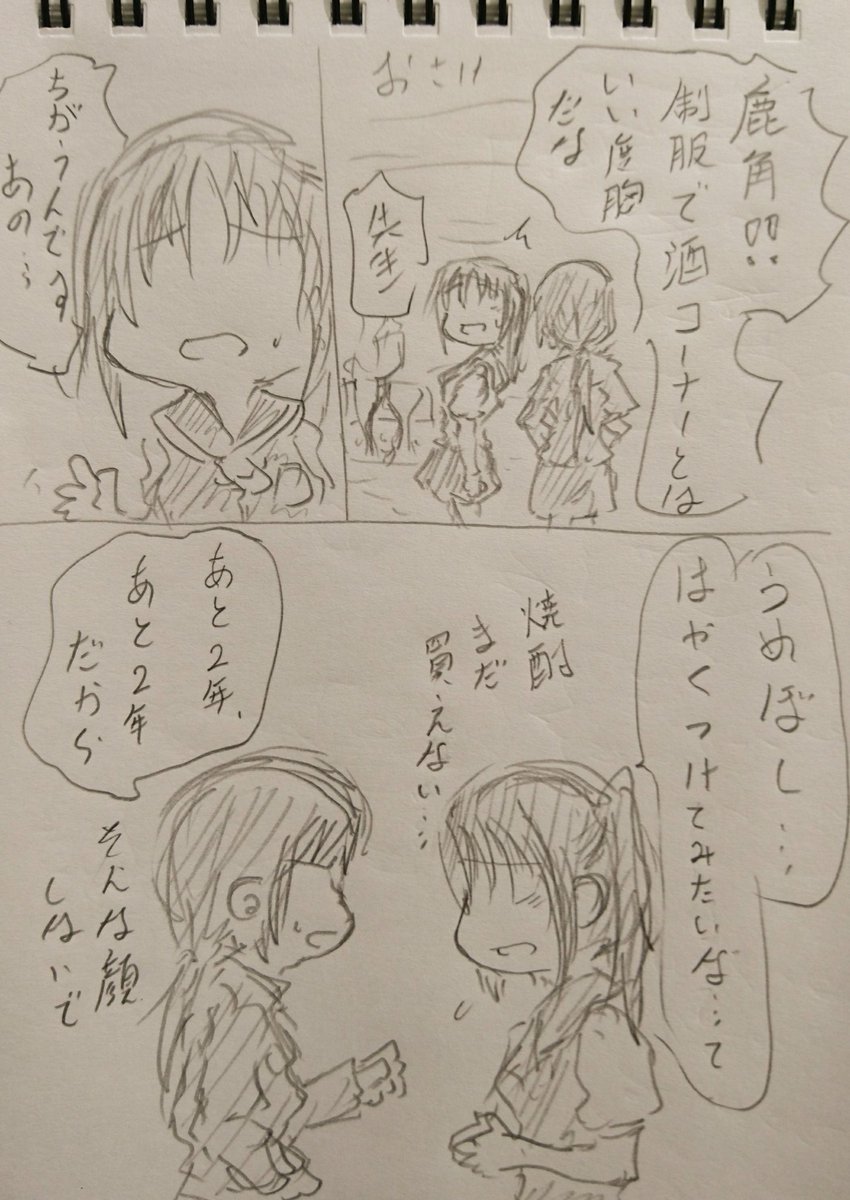 鹿角!!
制服で酒コーナーとは
いい度胸
だな
おさけ
先生
ちがうんです
あの…
うめぼし…
はやくつけてみたいな…って
焼酎
まだ
買えない…
あと2年、
あと2年
だから
そんな顔
しないで